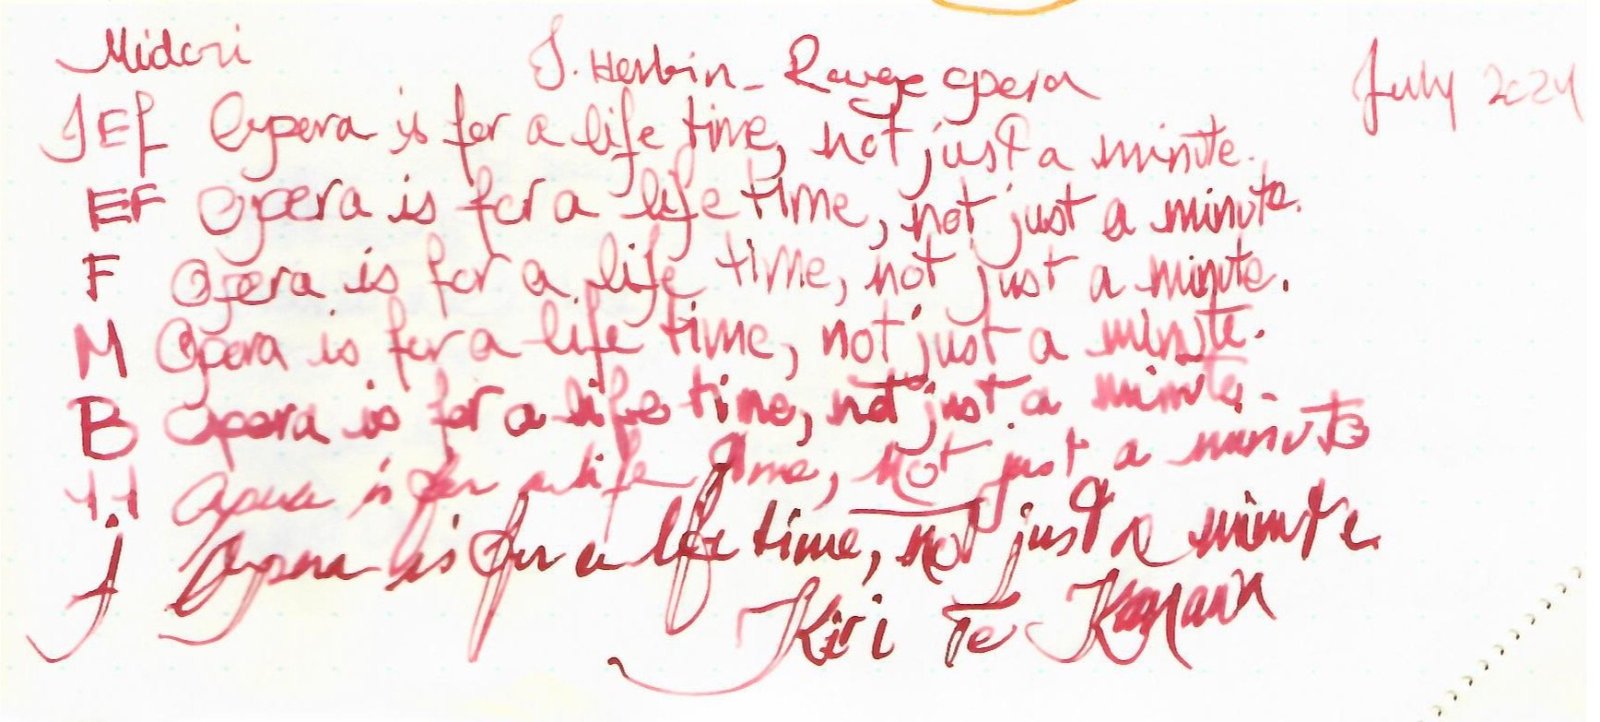 Midori J. Herbin - Rouge opera July 2024
JEF Opera is for a life time, not just a minute.
EF Opera is for a life time, not just a minute.
F Opera is for a life time, not just a minute.
M Opera is for a life time, not just a minute.
B Opera is for a life time, not just a minute.
Opera is for a life time, not just a minute
J Opera is for a life time, not just a minute.
Kiri Te Kanawa